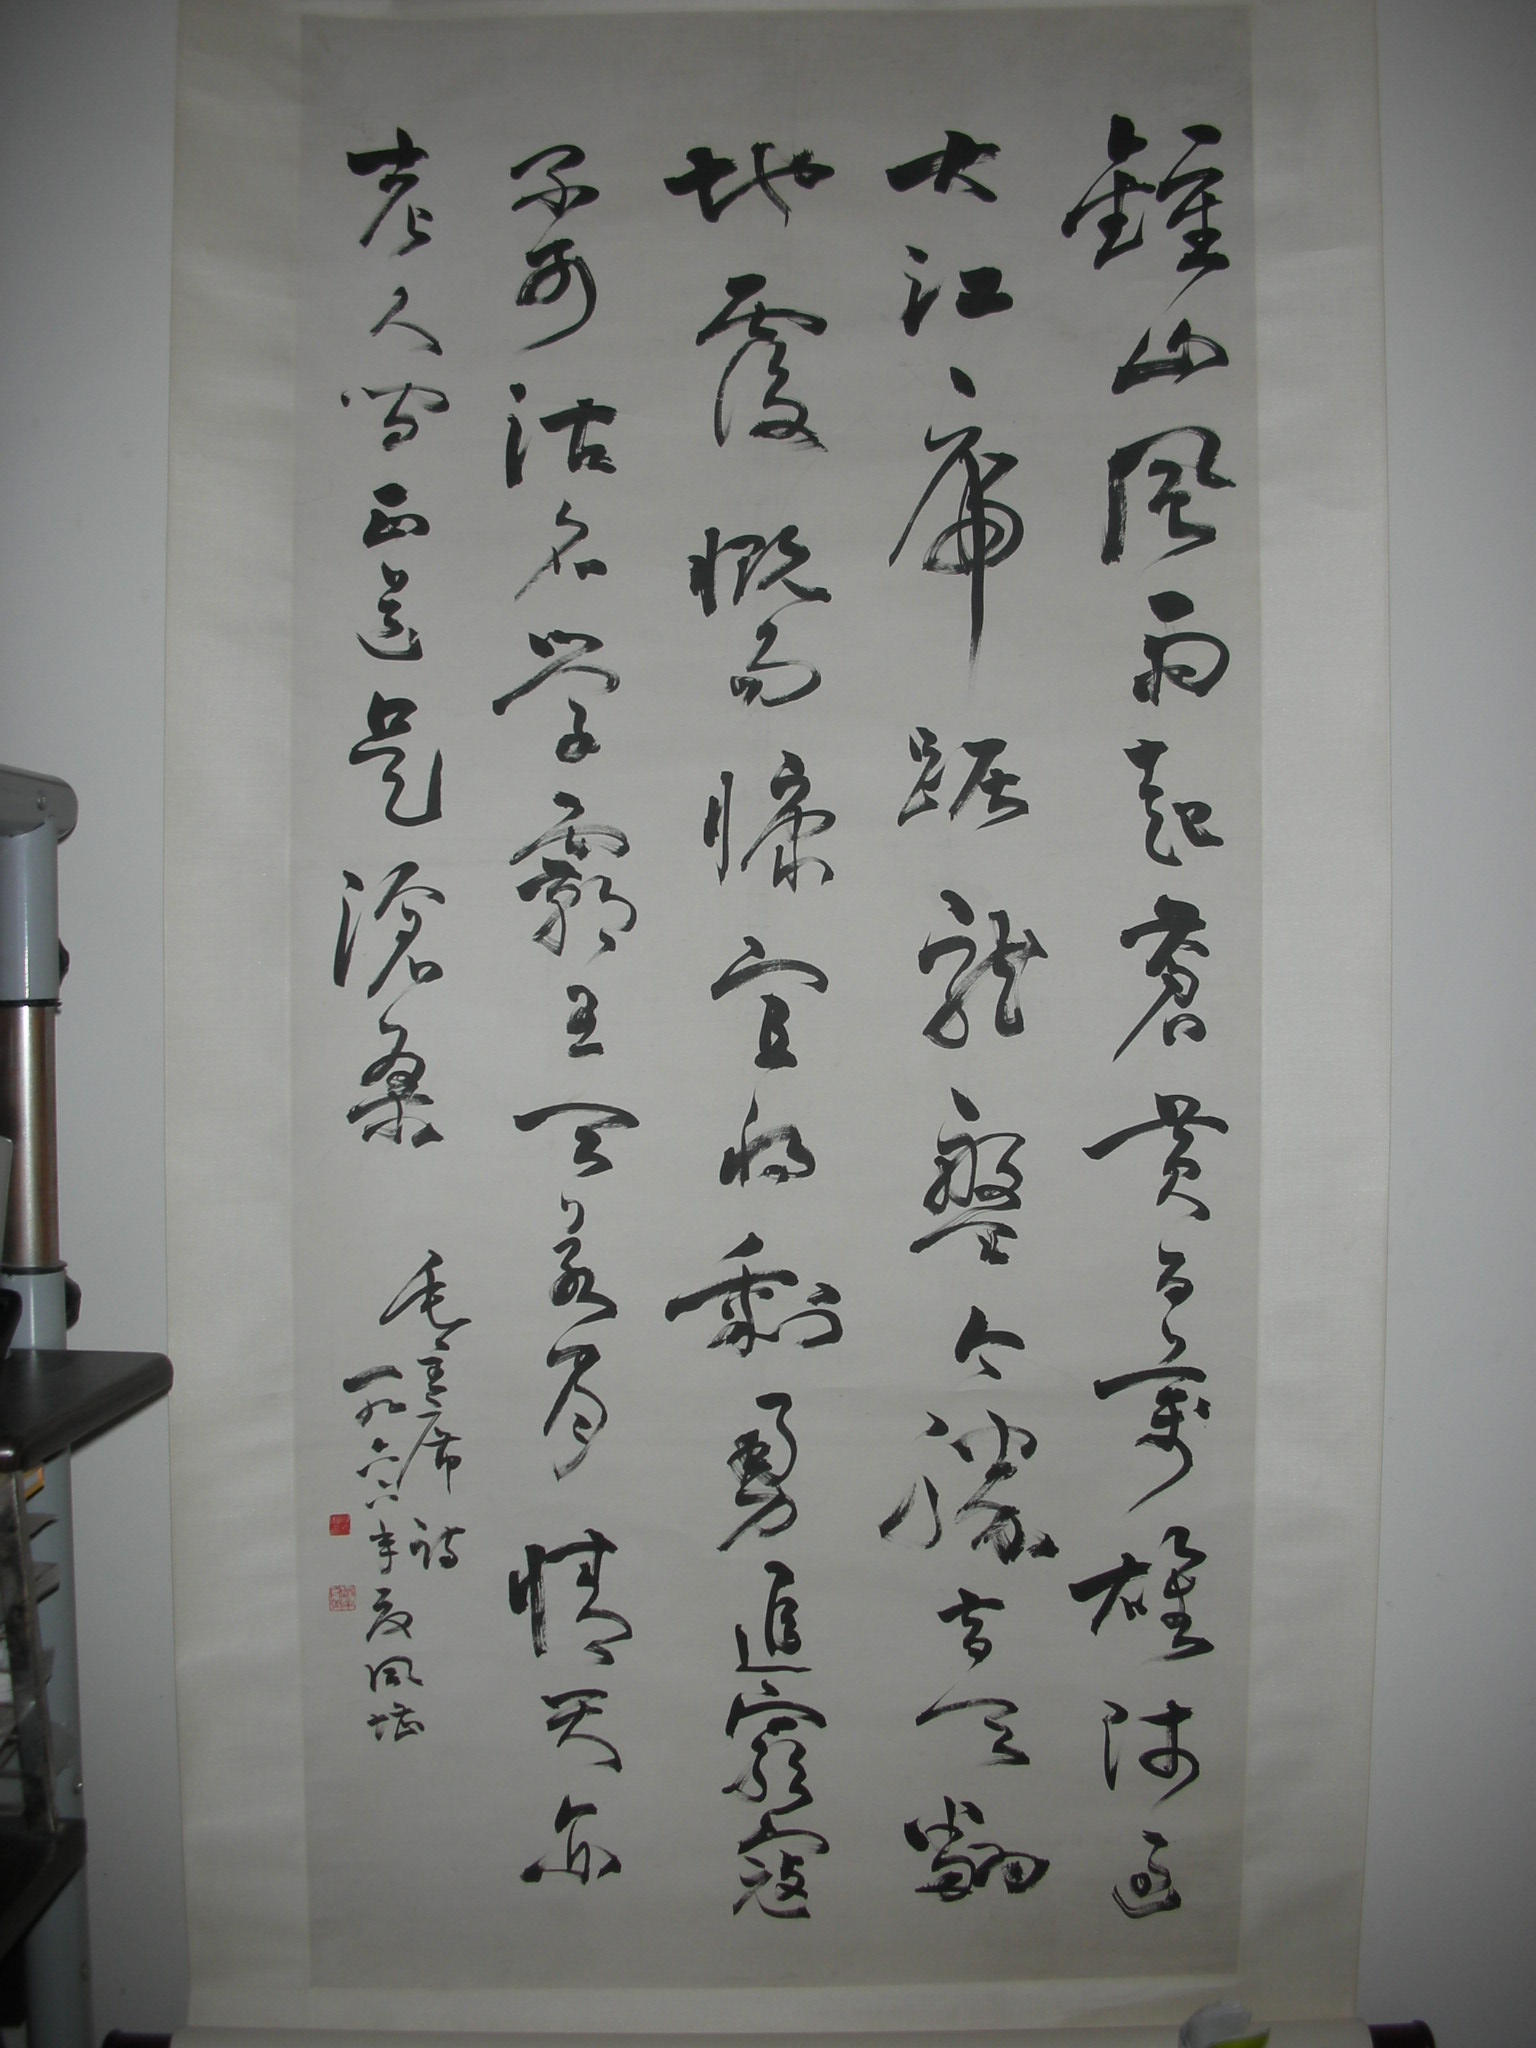 鍾山風雨起蒼黄百萬雄師過
大江虎踞龍盤今勝昔天翻
地覆慨而慷宜將剩勇追窮寇
不可沽名學霸王天若有情天亦
老人間正道是滄桑
毛主席詩
一九六六年